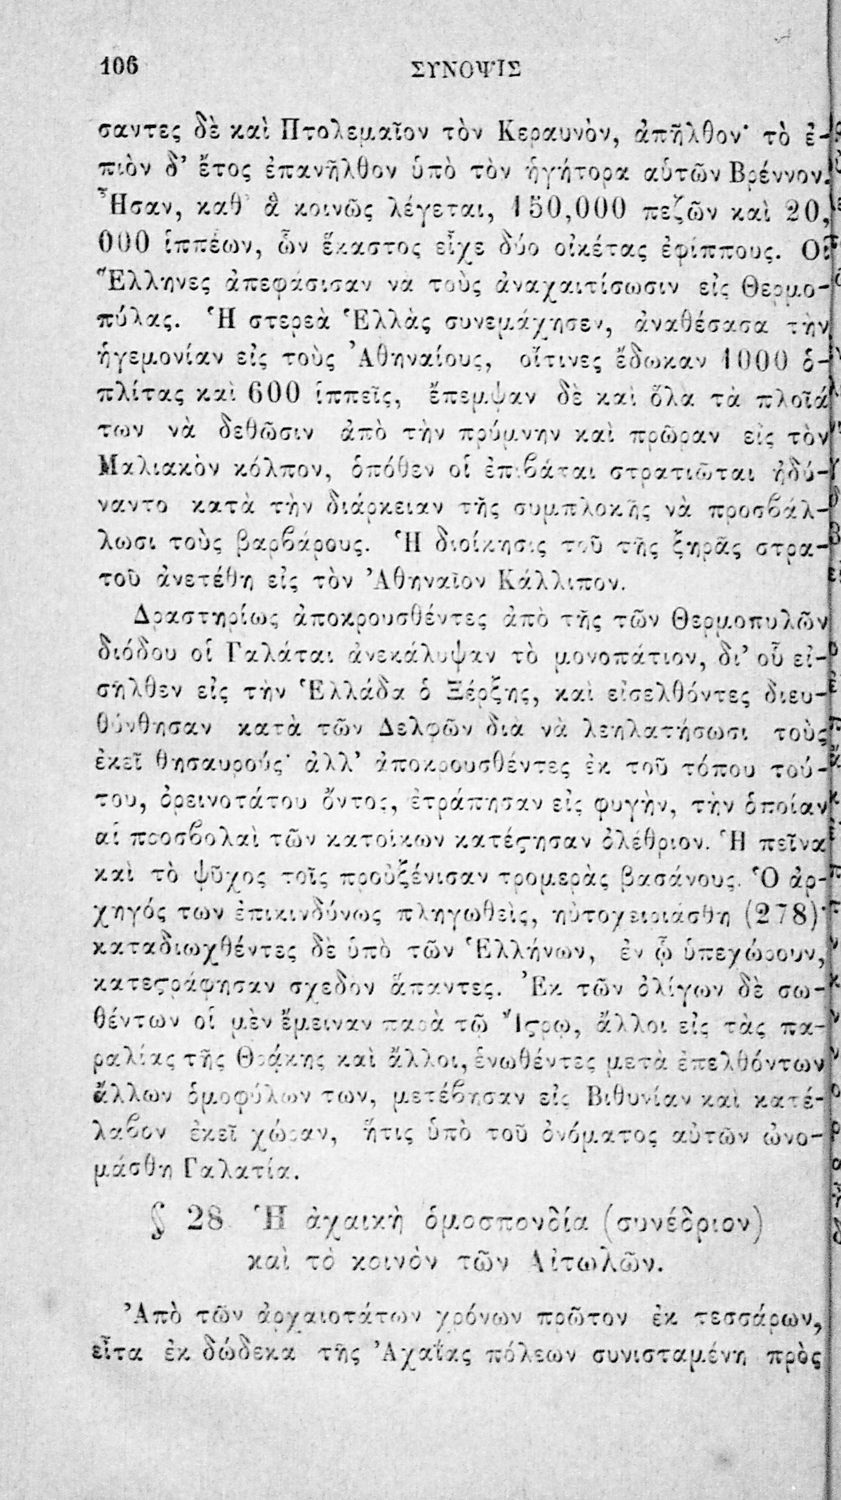 106 ΣΥΝΟΨΙΣ
σαντες δὲ καὶ Πτολεμαῖον τὸν Κεραυνὸν, ἀπῆλθον· τὸ ἐ-
πιὸν δ' ἔτος ἐπανῆλθον ὑπὸ τὸν ἡγήτορα αὑτῶν Βρέννον.
Ἦσαν, καθ' ἃ κοινῶς λέγεται, 150,000 πεζῶν καὶ 20,
000 ἱππέων, ὧν ἕκαστος εἶχε δύο οἰκέτας ἐφίππους. Οἱ
Ἕλληνες ἀπεφάσισαν νὰ τοὺς ἀναχαιτίσωσιν εἰς Θερμο-
πύλας. Ἡ στερεὰ Ἑλλὰς συνεμάχησεν, ἀναθέσασα τὴν
ἡγεμονίαν εἰς τοὺς Ἀθηναίους, οἵτινες ἔδωκαν 1000 ὁ-
πλίτας καὶ 600 ἱππεῖς, ἔπεμψαν δὲ καὶ ὅλα τὰ πλοῖά
των νὰ δεθῶσιν ἀπὸ τὴν πρύμνην καὶ πρῶραν εἰς τὸν
Μαλιακὸν κόλπον, ὁπόθεν οἱ ἐπιβάται στρατιῶται ἠδύ-
ναντο κατὰ τὴν διάρκειαν τῆς συμπλοκῆς νὰ προσβάλ-
λωσι τοὺς βαρβάρους. Ἡ διοίκησις τοῦ τῆς ξηρᾶς στρα-
τοῦ ἀνετέθη εἰς τὸν Ἀθηναῖον Κάλλιπον.
Δραστηρίως ἀποκρουσθέντες ἀπὸ τῆς τῶν Θερμοπυλῶν
διόδου οἱ Γαλάται ἀνεκάλυψαν τὸ μονοπάτιον, δι' οὗ εἰ-
σῆλθεν εἰς τὴν Ἑλλάδα ὁ Ξέρξης, καὶ εἰσελθόντες διευ-
θύνθησαν κατὰ τῶν Δελφῶν διὰ νὰ λεηλατήσωσι τοὺς
ἐκεῖ θησαυρούς· ἀλλ' ἀποκρουσθέντες ἐκ τοῦ τόπου τού-
του, ὀρεινοτάτου ὄντος, ἐτράπησαν εἰς φυγὴν, τὴν ὁποίαν
αἱ προσβολαὶ τῶν κατοίκων κατέϛησαν ὀλέθριον. Ἡ πεῖνα
καὶ τὸ ψῦχος τοῖς προὐξένισαν τρομερὰς βασάνους. Ὁ ἀρ-
χηγός των ἐπικινδύνως πληγωθεὶς, ηὐτοχειριάσθη (278)·
καταδιωχθέντες δὲ ὑπὸ τῶν Ἑλλήνων, ἐν ᾧ ὑπεχώρουν,
κατεϛράφησαν σχεδὸν ἅπαντες. Ἐκ τῶν ὀλίγων δὲ σω-
θέντων οἱ μὲν ἔμειναν παρὰ τῶ Ἴϛρῳ, ἄλλοι εἰς τὰς πα-
ραλίας τῆς Θράκης καὶ ἄλλοι, ἑνωθέντες μετὰ ἐπελθόντων
ἄλλων ὁμοφύλων των, μετέβησαν εἰς Βιθυνίαν καὶ κατέ-
λαβον ἐκεῖ χώραν, ἥτις ὑπὸ τοῦ ὀνόματος αὐτῶν ὠνο-
μάσθη Γαλατία.
§ 28. Ἡ ἀχαικὴ ὁμοσπονδία (συνέδριον)
καὶ τὸ κοινὸν τῶν Αἰτωλῶν.
Ἀπὸ τῶν ἀρχαιοτάτων χρόνων πρῶτον ἐκ τεσσάρων,
εἶτα ἐκ δώδεκα τῆς Ἀχαΐας πόλεων συνισταμένη πρὸς